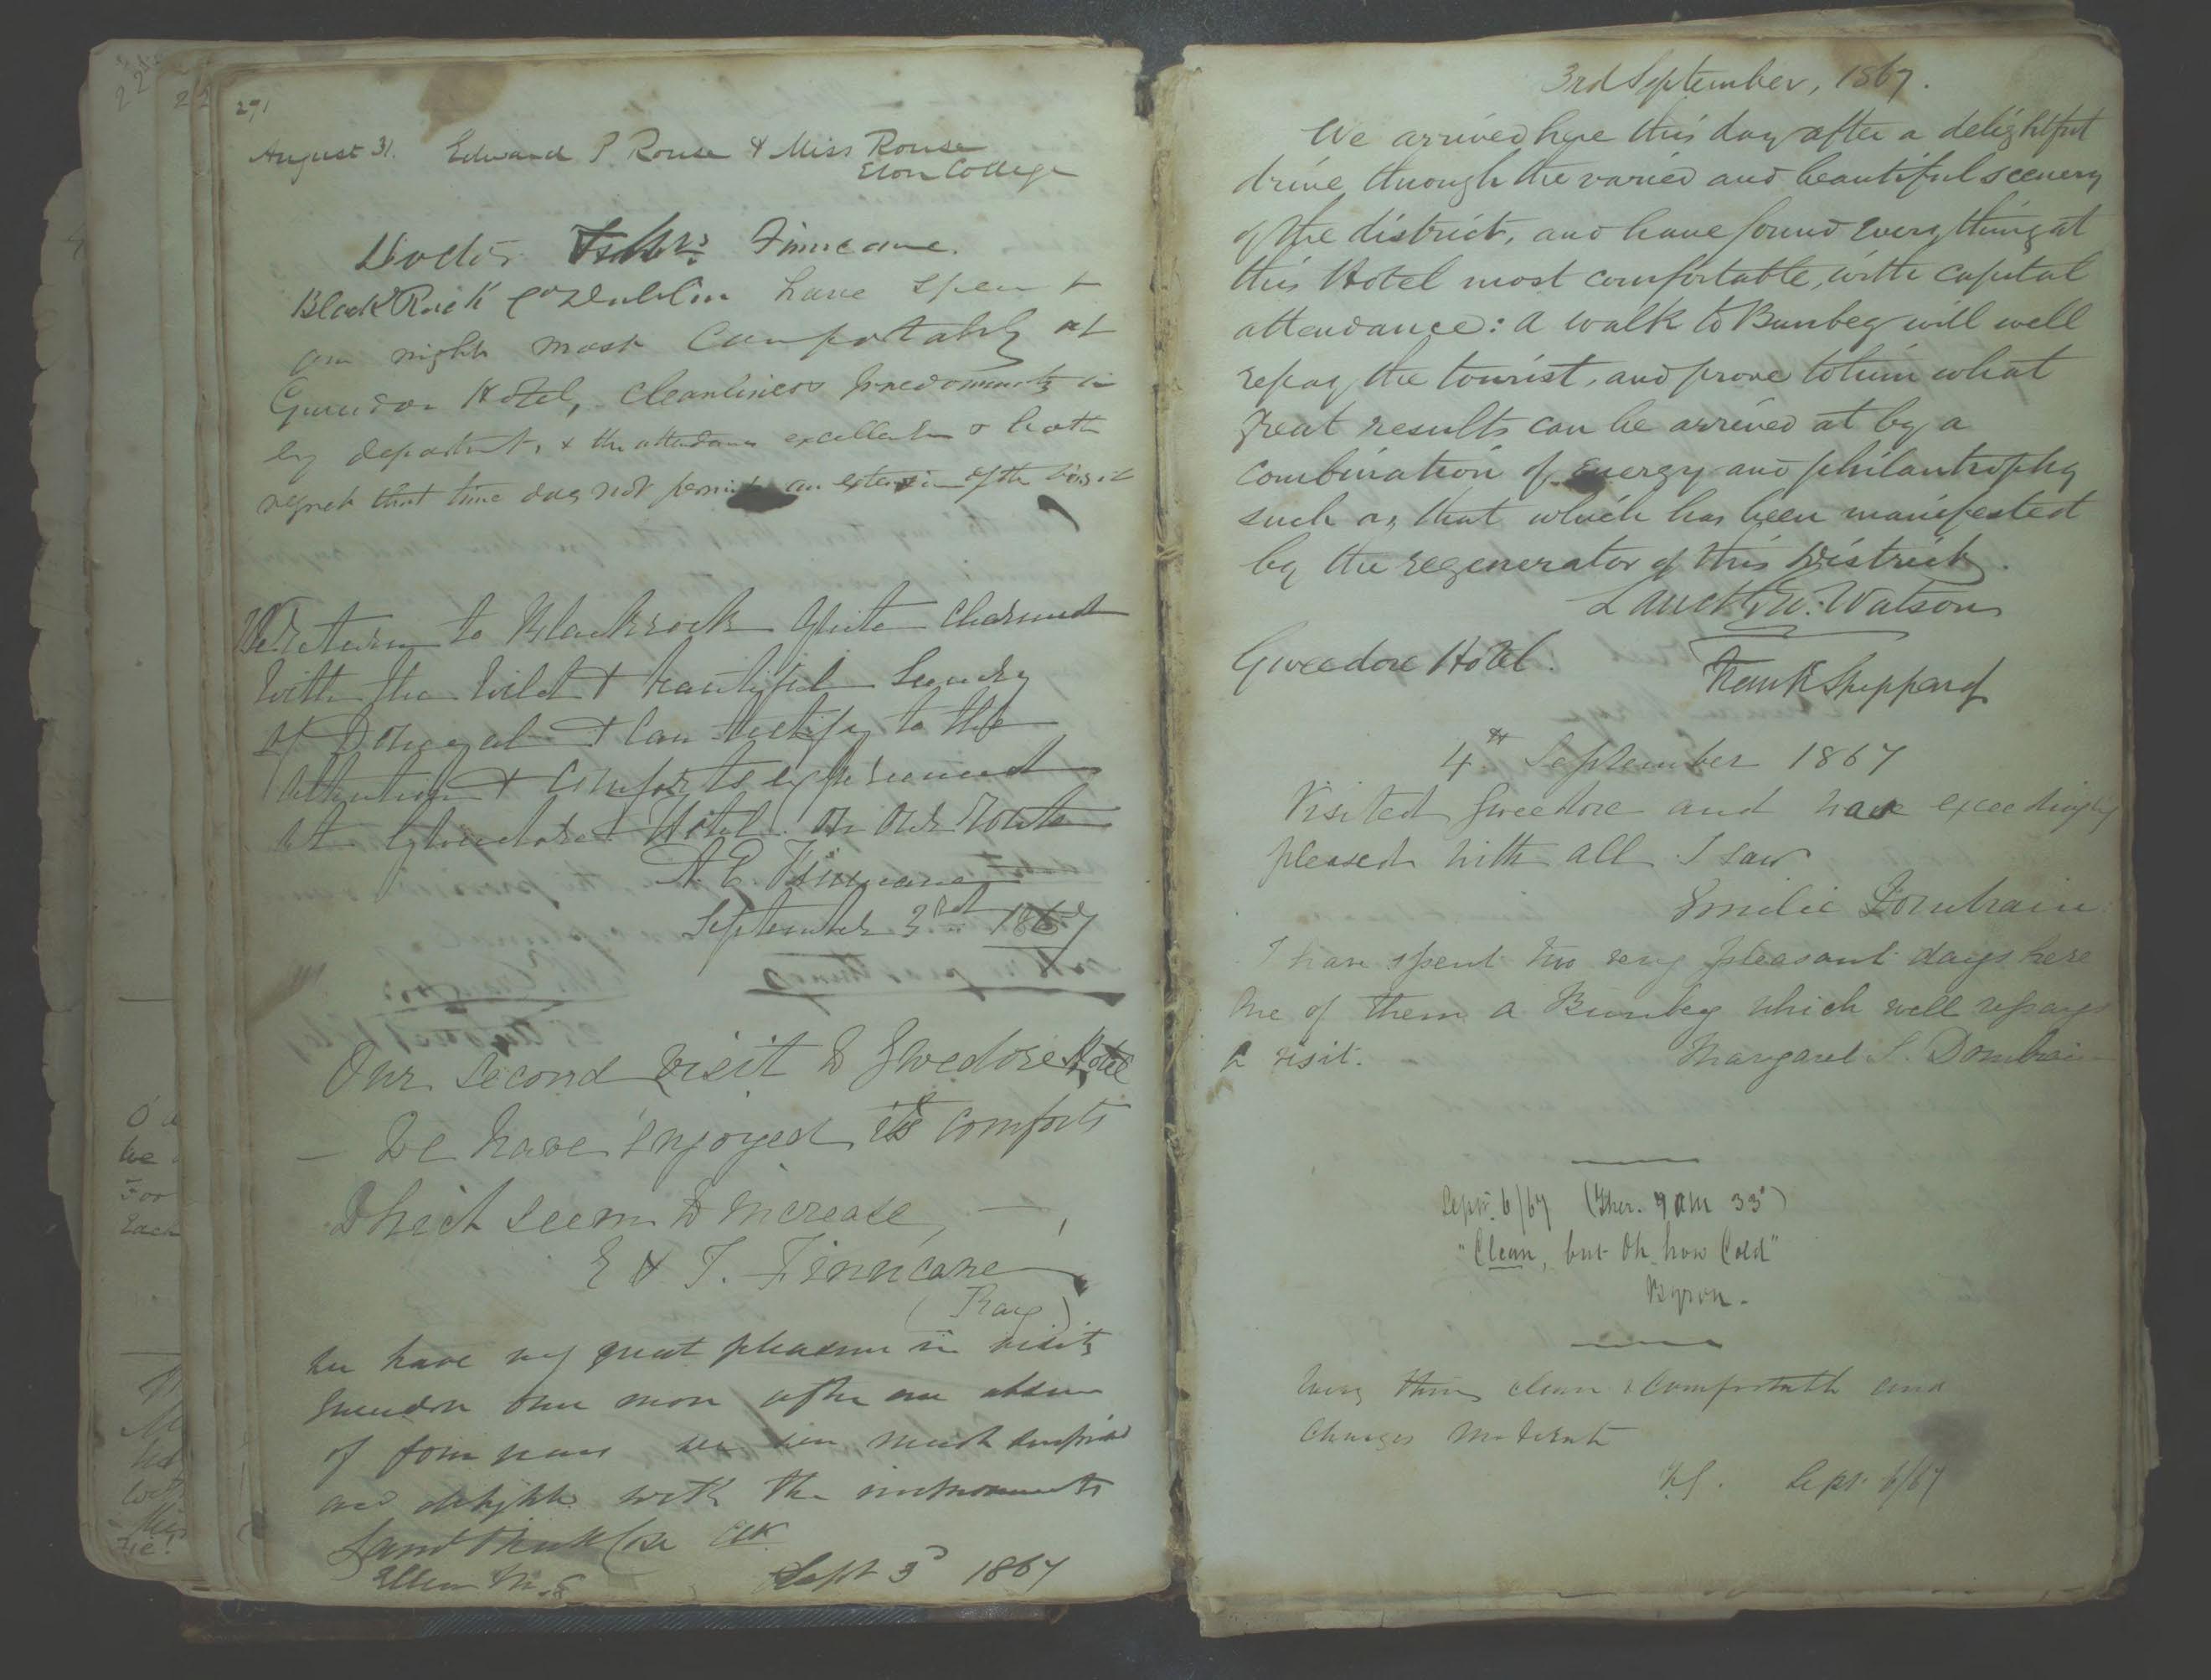 271
August 31. Edward P. Rouse & Miss Rouse
Eton College
Doctor Finucane.
BlackRock Co Dublin have spent
one night most Comfortably at
Gweedor Hotel, cleanliness predominates in
every department, & the attendance excellent & both
regret that time does not permit an extension of the visit
We return to Blackrock quite charmed
with the wild & beautiful Scenery
of Donegal & Can testify to the
attention & Comforts experienced
at Gweedore Hotel on our Route
A. E. Finucane
September 3rd 1867
Our second visit to Gweedore Hotel
- We have enjoyed its comforts
which seem to increase, —
E & T. Finucane
we have very great pleasure in visiting
Gweedor once more after an absence
of four years we were much surprised
and delighted with the improvements
Sept 3d 1867
3rd September, 1867.
We arrived here this day after a delightful
drive through the varied and beautiful scenery
of the district, and have found every thing at
this Hotel most comfortable, with capital
attendance: a walk to Bunbeg will well
repay the tourist, and prove to him what
great results can be arrived at by a
combination of energy and philantrophy
such as that which has been manifested
by the regenerator of this District.
Watson
Gweedore Hotel.
Frank Sheppard
4th September 1867
Visited Gweedore and was exceedingly
pleased with all I saw
Emilie Dombrain
I have spent two very pleasant days here
One of them a Bunbeg which well repays
a visit. Margaret S. Dombrain
Sept. 6/67 (Ther. 9 am 33°)
"Clean, but Oh how Cold"
Byron.
Every thing clean & Comfortable and
Charges Moderate
Sept. 6/67